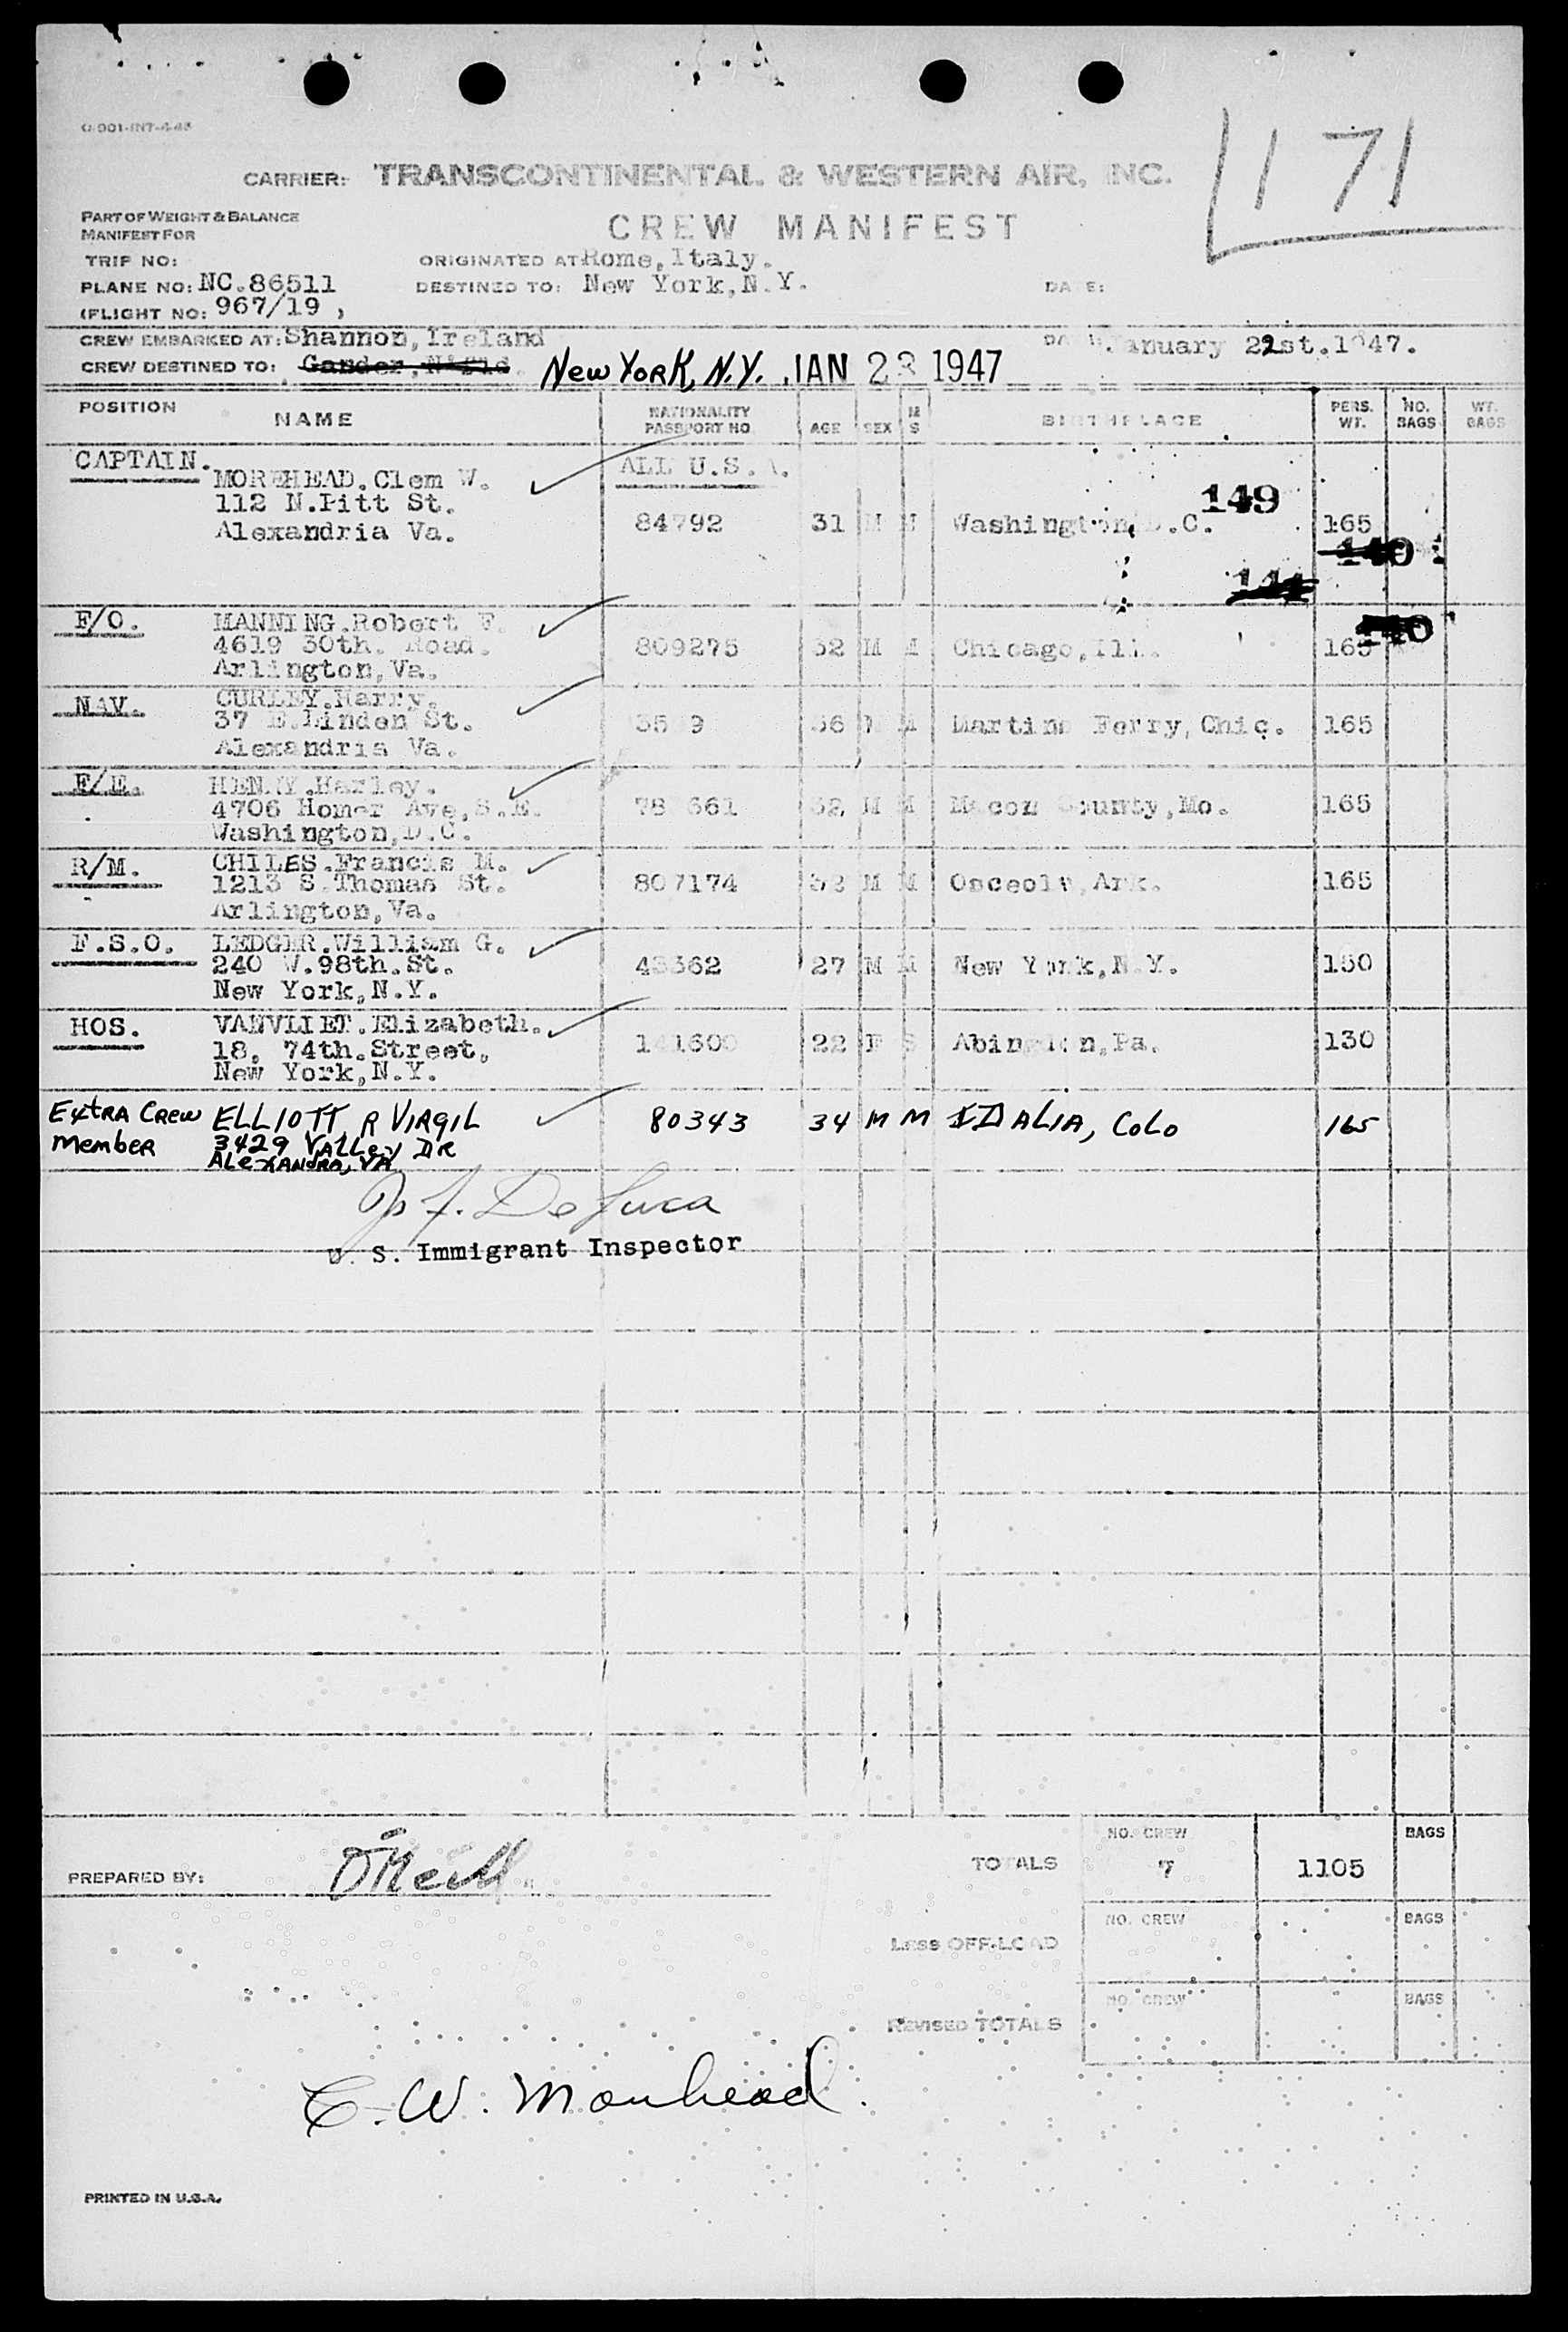 CARRIER: TRANSCONTINENTAL & WESTERN AIR, INC.
1171
PART OF WEIGHT & BALANCE
MANIFEST FOR
CREW MANIFEST
TRIP NO: ORIGINATED AT Rome, Italy.
PLANE NO: NC.86511 DESTINED TO: New York, N.Y. DATE:
(FLIGHT NO: 967/19 )
CREW EMBARKED AT: Shannon, Ireland January 22st. 1947.
CREW DESTINED TO: New York, N.Y. JAN 1947
POSITION NAME NATIONALITY PASSPORT NO AGE SEX M S BIRTHPLACE PERS. WT. NO. BAGS WT. BAGS
CAPTAIN. MOREHEAD. Clem W. ALL U.S.A.
112 N. Pitt St. 149
Alexandria Va. 84792 31 M M Washington, D.C. 165
140
144
140
F/O. MANNING. Robert F.
4619 30th. Road. 809275 32 M M Chicago, Ill. 165
Arlington, Va.
NAV. CURLEY. Harry.
37 E. Linden St. 36 M Martins Ferry, Ohio. 165
Alexandria Va.
F/E. HENRY. Harley.
4706 Homer Ave, S.E. 32 M M Macon County, Mo. 165
Washington, D.C.
R/M. CHILES. Francis M.
1213 S. Thomas St. 807174 32 M M Osceola, Ark. 165
Arlington, Va.
F.S.O. LEDGER. William G.
240 W. 98th. St. 27 M M New York, N.Y. 150
New York, N.Y.
HOS. VANVLIET. Elizabeth.
18. 74th. Street, 22 F S Abingdon, Pa. 130
New York, N.Y.
Extra Crew ELLIOTT R VIRGIL 80343 34 M M IDALIA, COLO 165
Member 3429 Valley DR
ALEXANDRA, VA
De Luca
U. S. Immigrant Inspector
PREPARED BY: O'Neill TOTALS NO. CREW 7 1105 BAGS
LESS OFF-LOAD NO. CREW BAGS
REVISED TOTALS NO. CREW BAGS
C. W. Morehead.
PRINTED IN U.S.A.